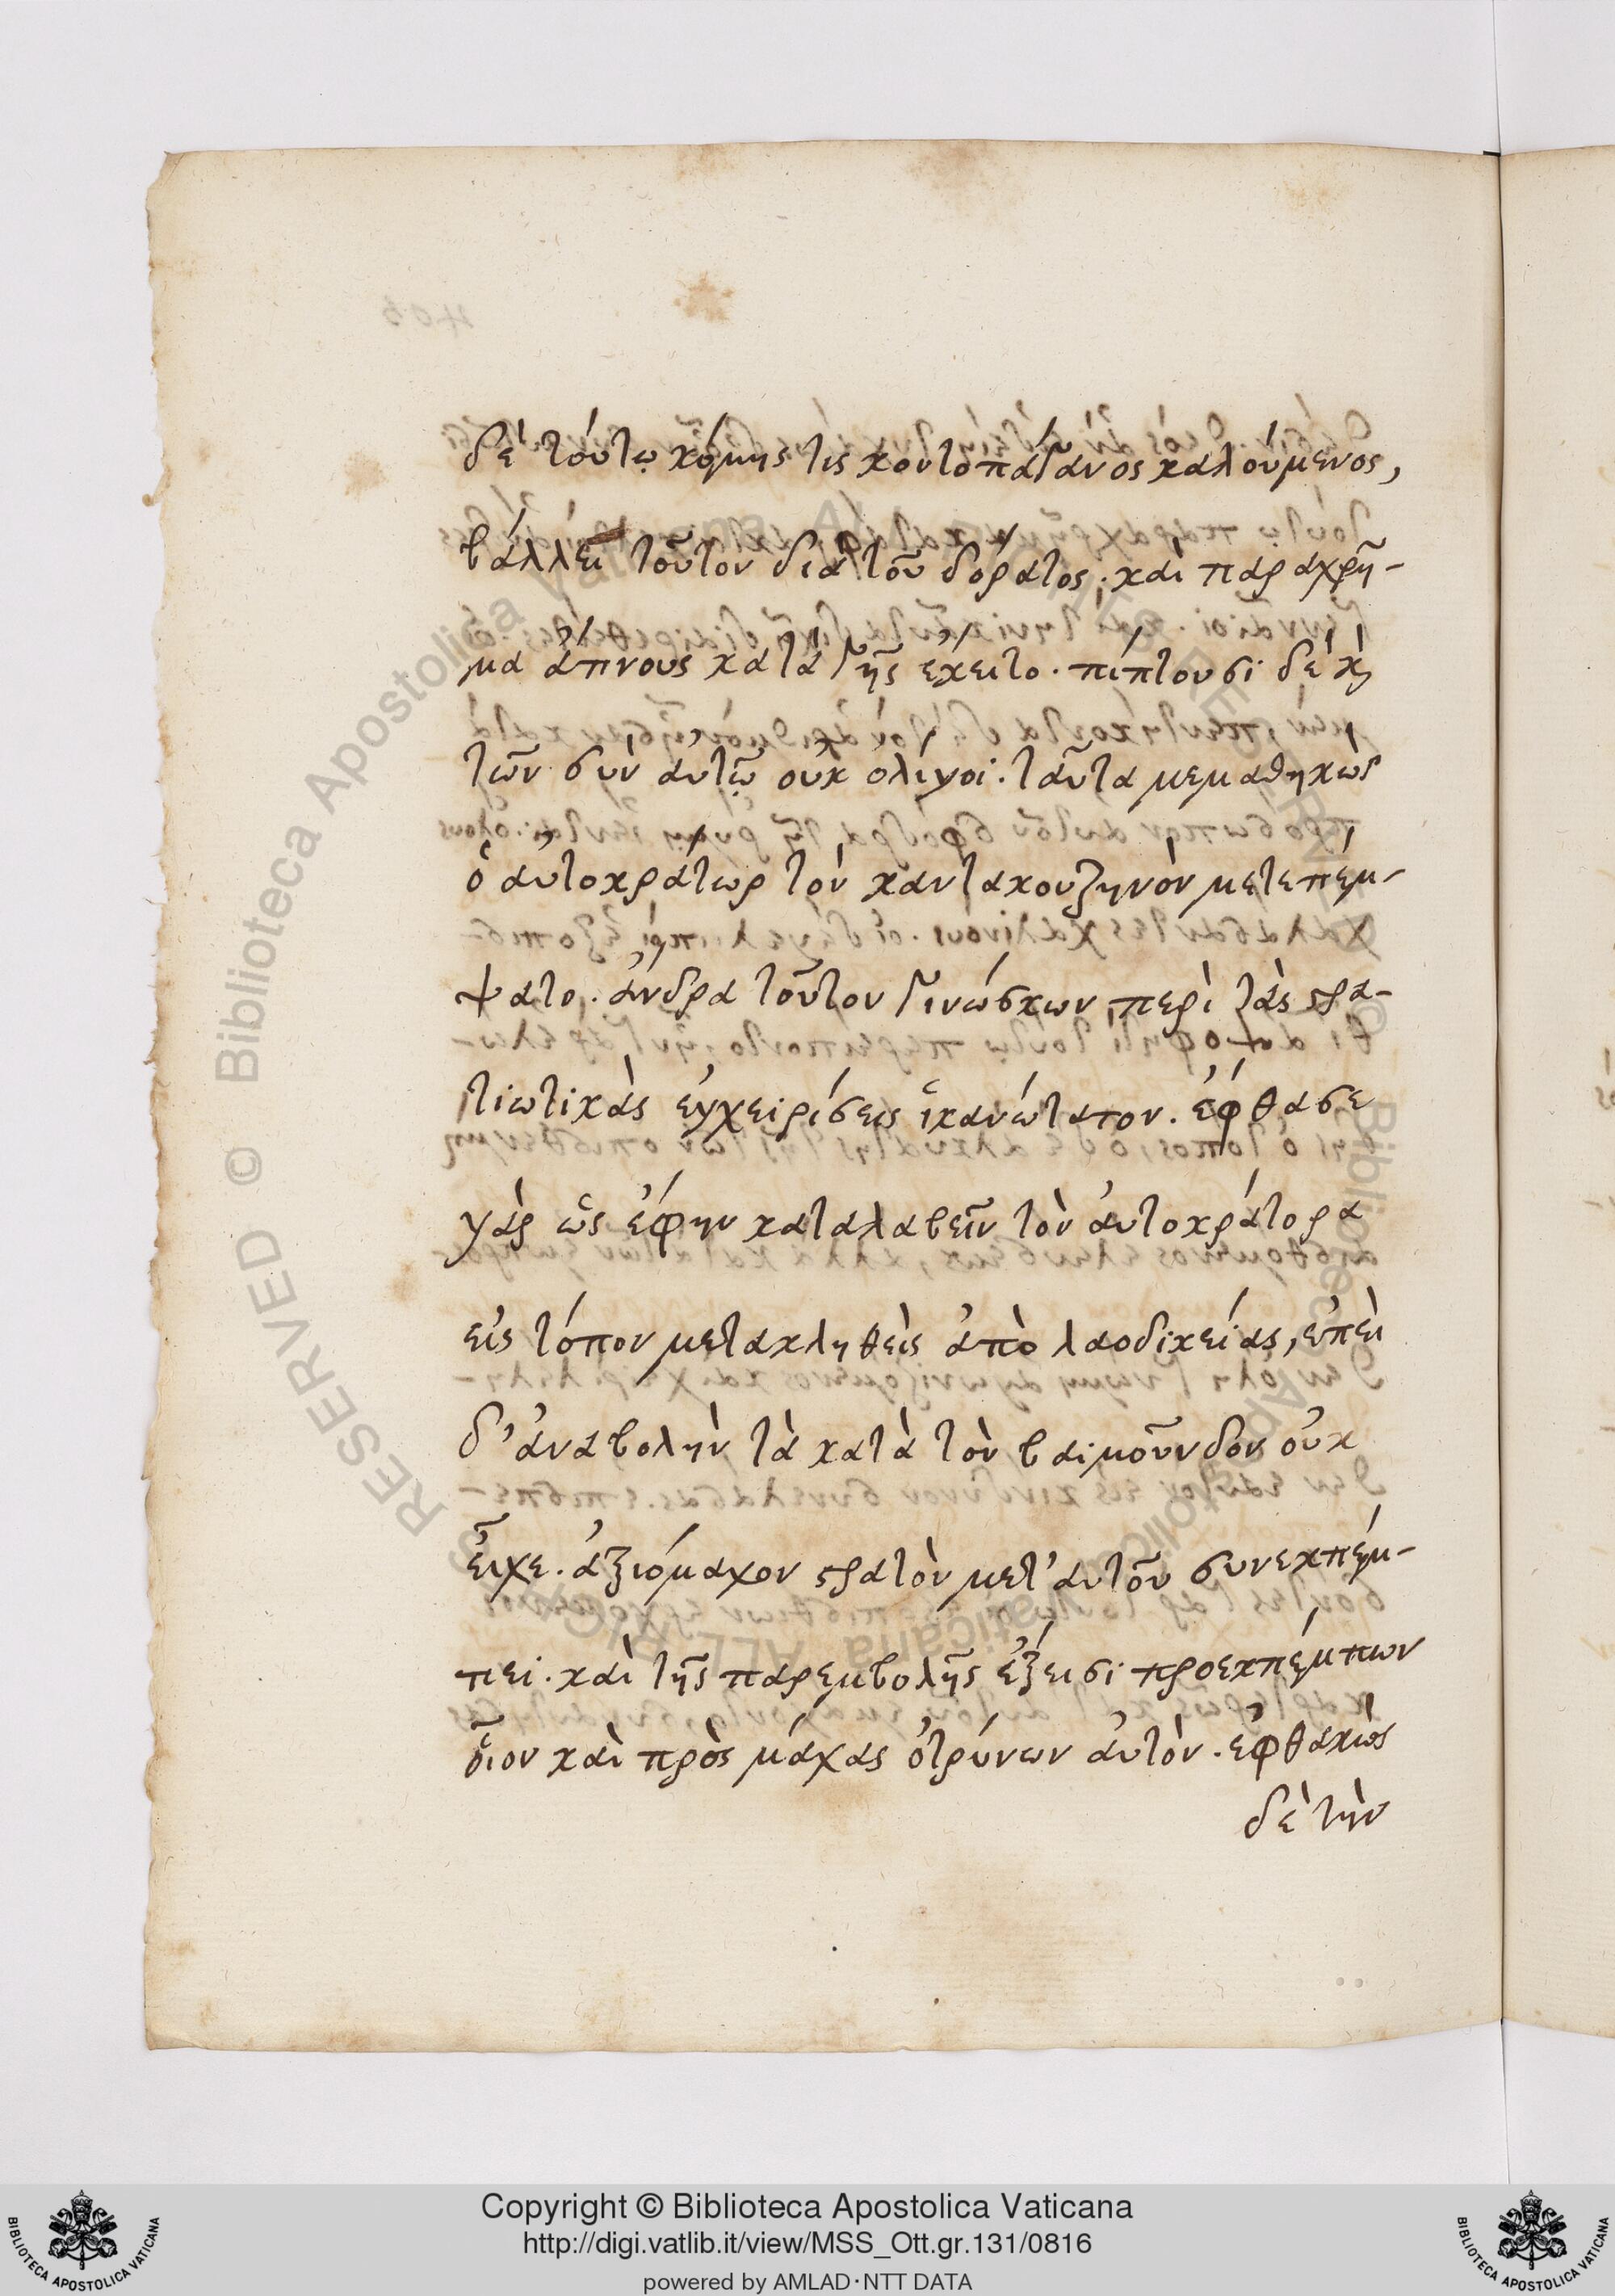 δὲ τούτῳ κόμης τις κοντοπαγάνος καλούμενος,
βάλλει τοῦτον διὰ τοῦ δόρατος· καὶ παραχρῆ-
μα ἄπνους κατὰ γῆς ἔκειτο. πίπτουσι δὲ κ̀
τῶν σὺν ἀυτῷ οὐκ ὀλίγοι. ταῦτα μεμαθηκὼς
ὁ ἀυτοκράτωρ τὸν κάντακουζηνὸν μετεπέμ-
ψατο. ἄνδρα τοῦτον γινώσκων περὶ τὰς ϛρα-
τιωτικὰς ἐγχειρίσεις ἱκανώτατον. ἔφθασε
γὰρ ὡς ἔφην καταλαβεῖν τὸν ἀυτοκράτορα
εἰς τόπον μετακληθεὶς ἀπὸ λαοδικείας, ἐπεὶ
δ' ἀναβολὴν τὰ κατὰ τὸν βαϊμοῦνδον οὐκ
εἶχε. ἀξιόμαχον ϛρατὸν μετ' ἀυτοῦ συνεκπέμ-
πει. καὶ τῆς παρεμβολῆς ἔξεισι προεκπέμπων
οἷον καὶ πρὸς μάχας ὀτρύνων ἀυτόν. ἐφθακὼς
δὲ τὴν
Copyright © Biblioteca Apostolica Vaticana
http://digi.vatlib.it/view/MSS_Ott.gr.131/0816
powered by AMLAD·NTT DATA
BIBLIOTECA APOSTOLICA VATICANA
BIBLIOTECA APOSTOLICA VATICANA